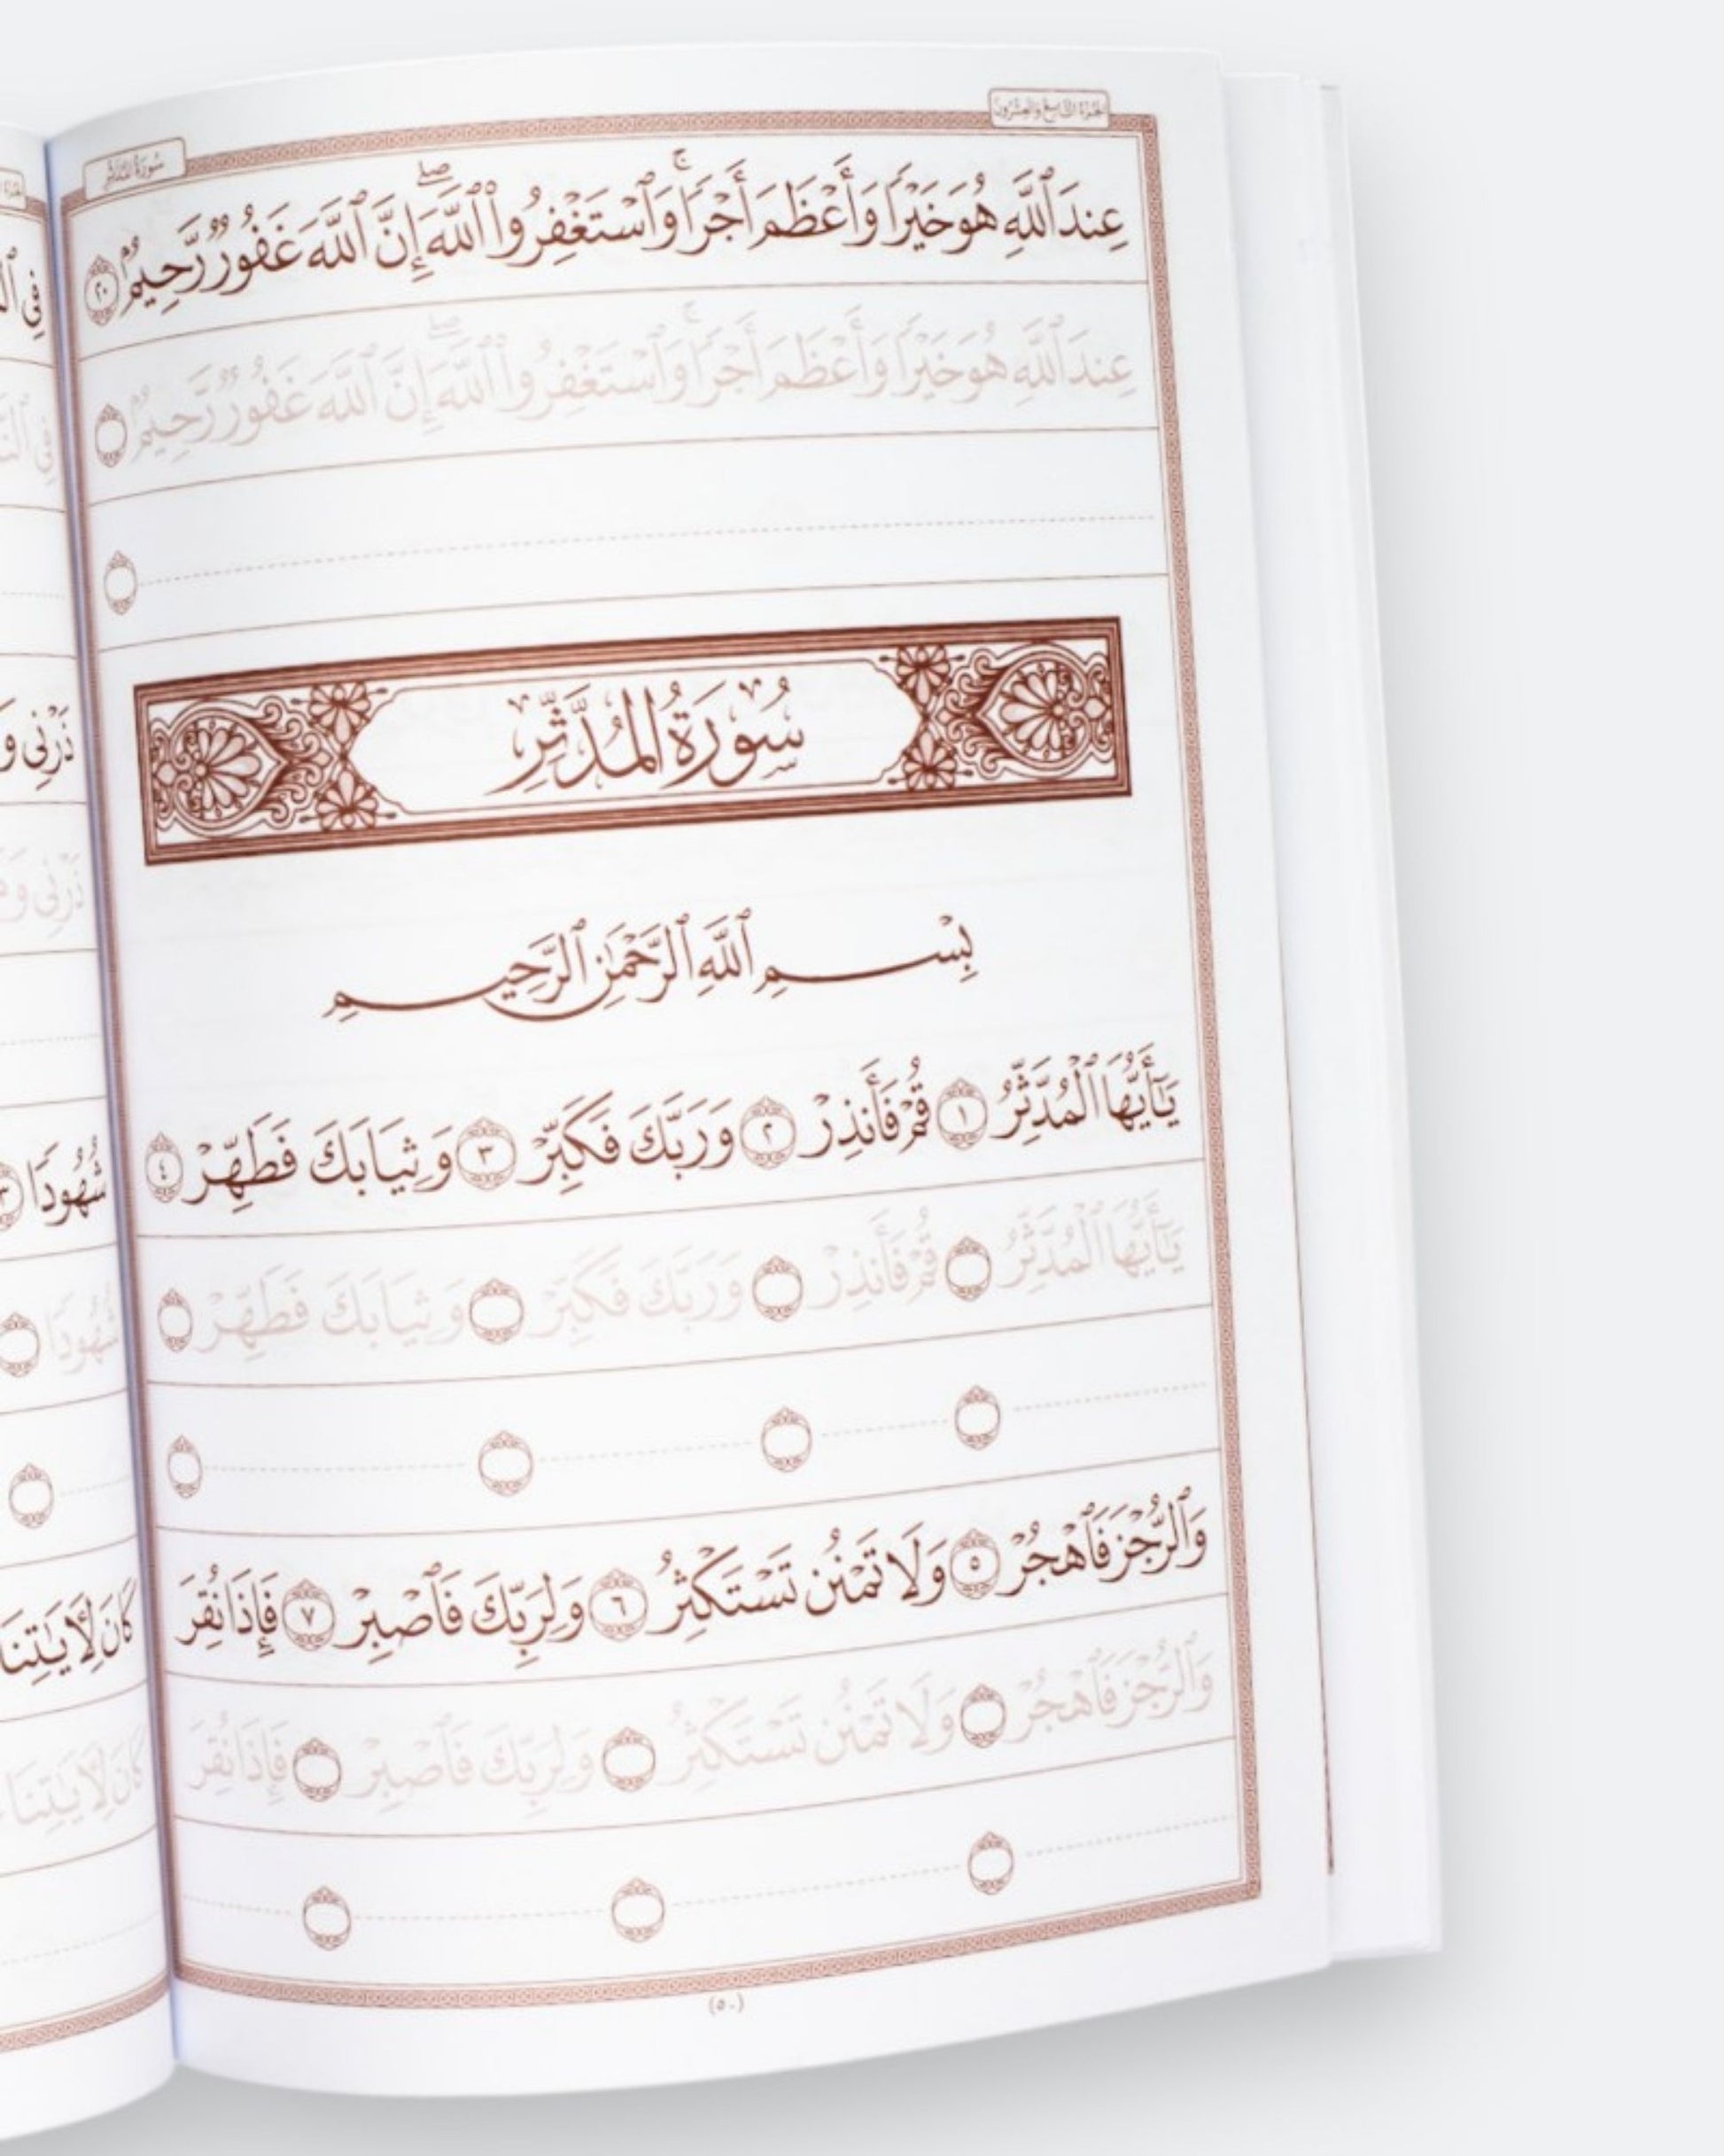 الجزء التاسع والعشرون
سورة المدثر
عِندَ ٱللَّهِ هُوَ خَيْرًا وَأَعْظَمَ أَجْرًا ۚ وَٱسْتَغْفِرُوا۟ ٱللَّهَ ۖ إِنَّ ٱللَّهَ غَفُورٌ رَّحِيمٌۢ ٢٠
عِندَ ٱللَّهِ هُوَ خَيْرًا وَأَعْظَمَ أَجْرًا ۚ وَٱسْتَغْفِرُوا۟ ٱللَّهَ ۖ إِنَّ ٱللَّهَ غَفُورٌ رَّحِيمٌۢ
سُورَةُ المُدَّثِّرِ
بِسْمِ ٱللَّهِ ٱلرَّحْمَٰنِ ٱلرَّحِيمِ
يَٰٓأَيُّهَا ٱلْمُدَّثِّرُ ١ قُمْ فَأَنذِرْ ٢ وَرَبَّكَ فَكَبِّرْ ٣ وَثِيَابَكَ فَطَهِّرْ ٤
يَٰٓأَيُّهَا ٱلْمُدَّثِّرُ قُمْ فَأَنذِرْ وَرَبَّكَ فَكَبِّرْ وَثِيَابَكَ فَطَهِّرْ
وَٱلرُّجْزَ فَٱهْجُرْ ٥ وَلَا تَمْنُن تَسْتَكْثِرُ ٦ وَلِرَبِّكَ فَٱصْبِرْ ٧ فَإِذَا نُقِرَ
وَٱلرُّجْزَ فَٱهْجُرْ وَلَا تَمْنُن تَسْتَكْثِرُ وَلِرَبِّكَ فَٱصْبِرْ فَإِذَا نُقِرَ
(٥٠)
فِى
فِى
ذَرْنِى
ذَرْنِى
شُهُودًا
شُهُودًا
كَانَ لِـَٔايَٰتِنَا
كَانَ لِـَٔايَٰتِنَا